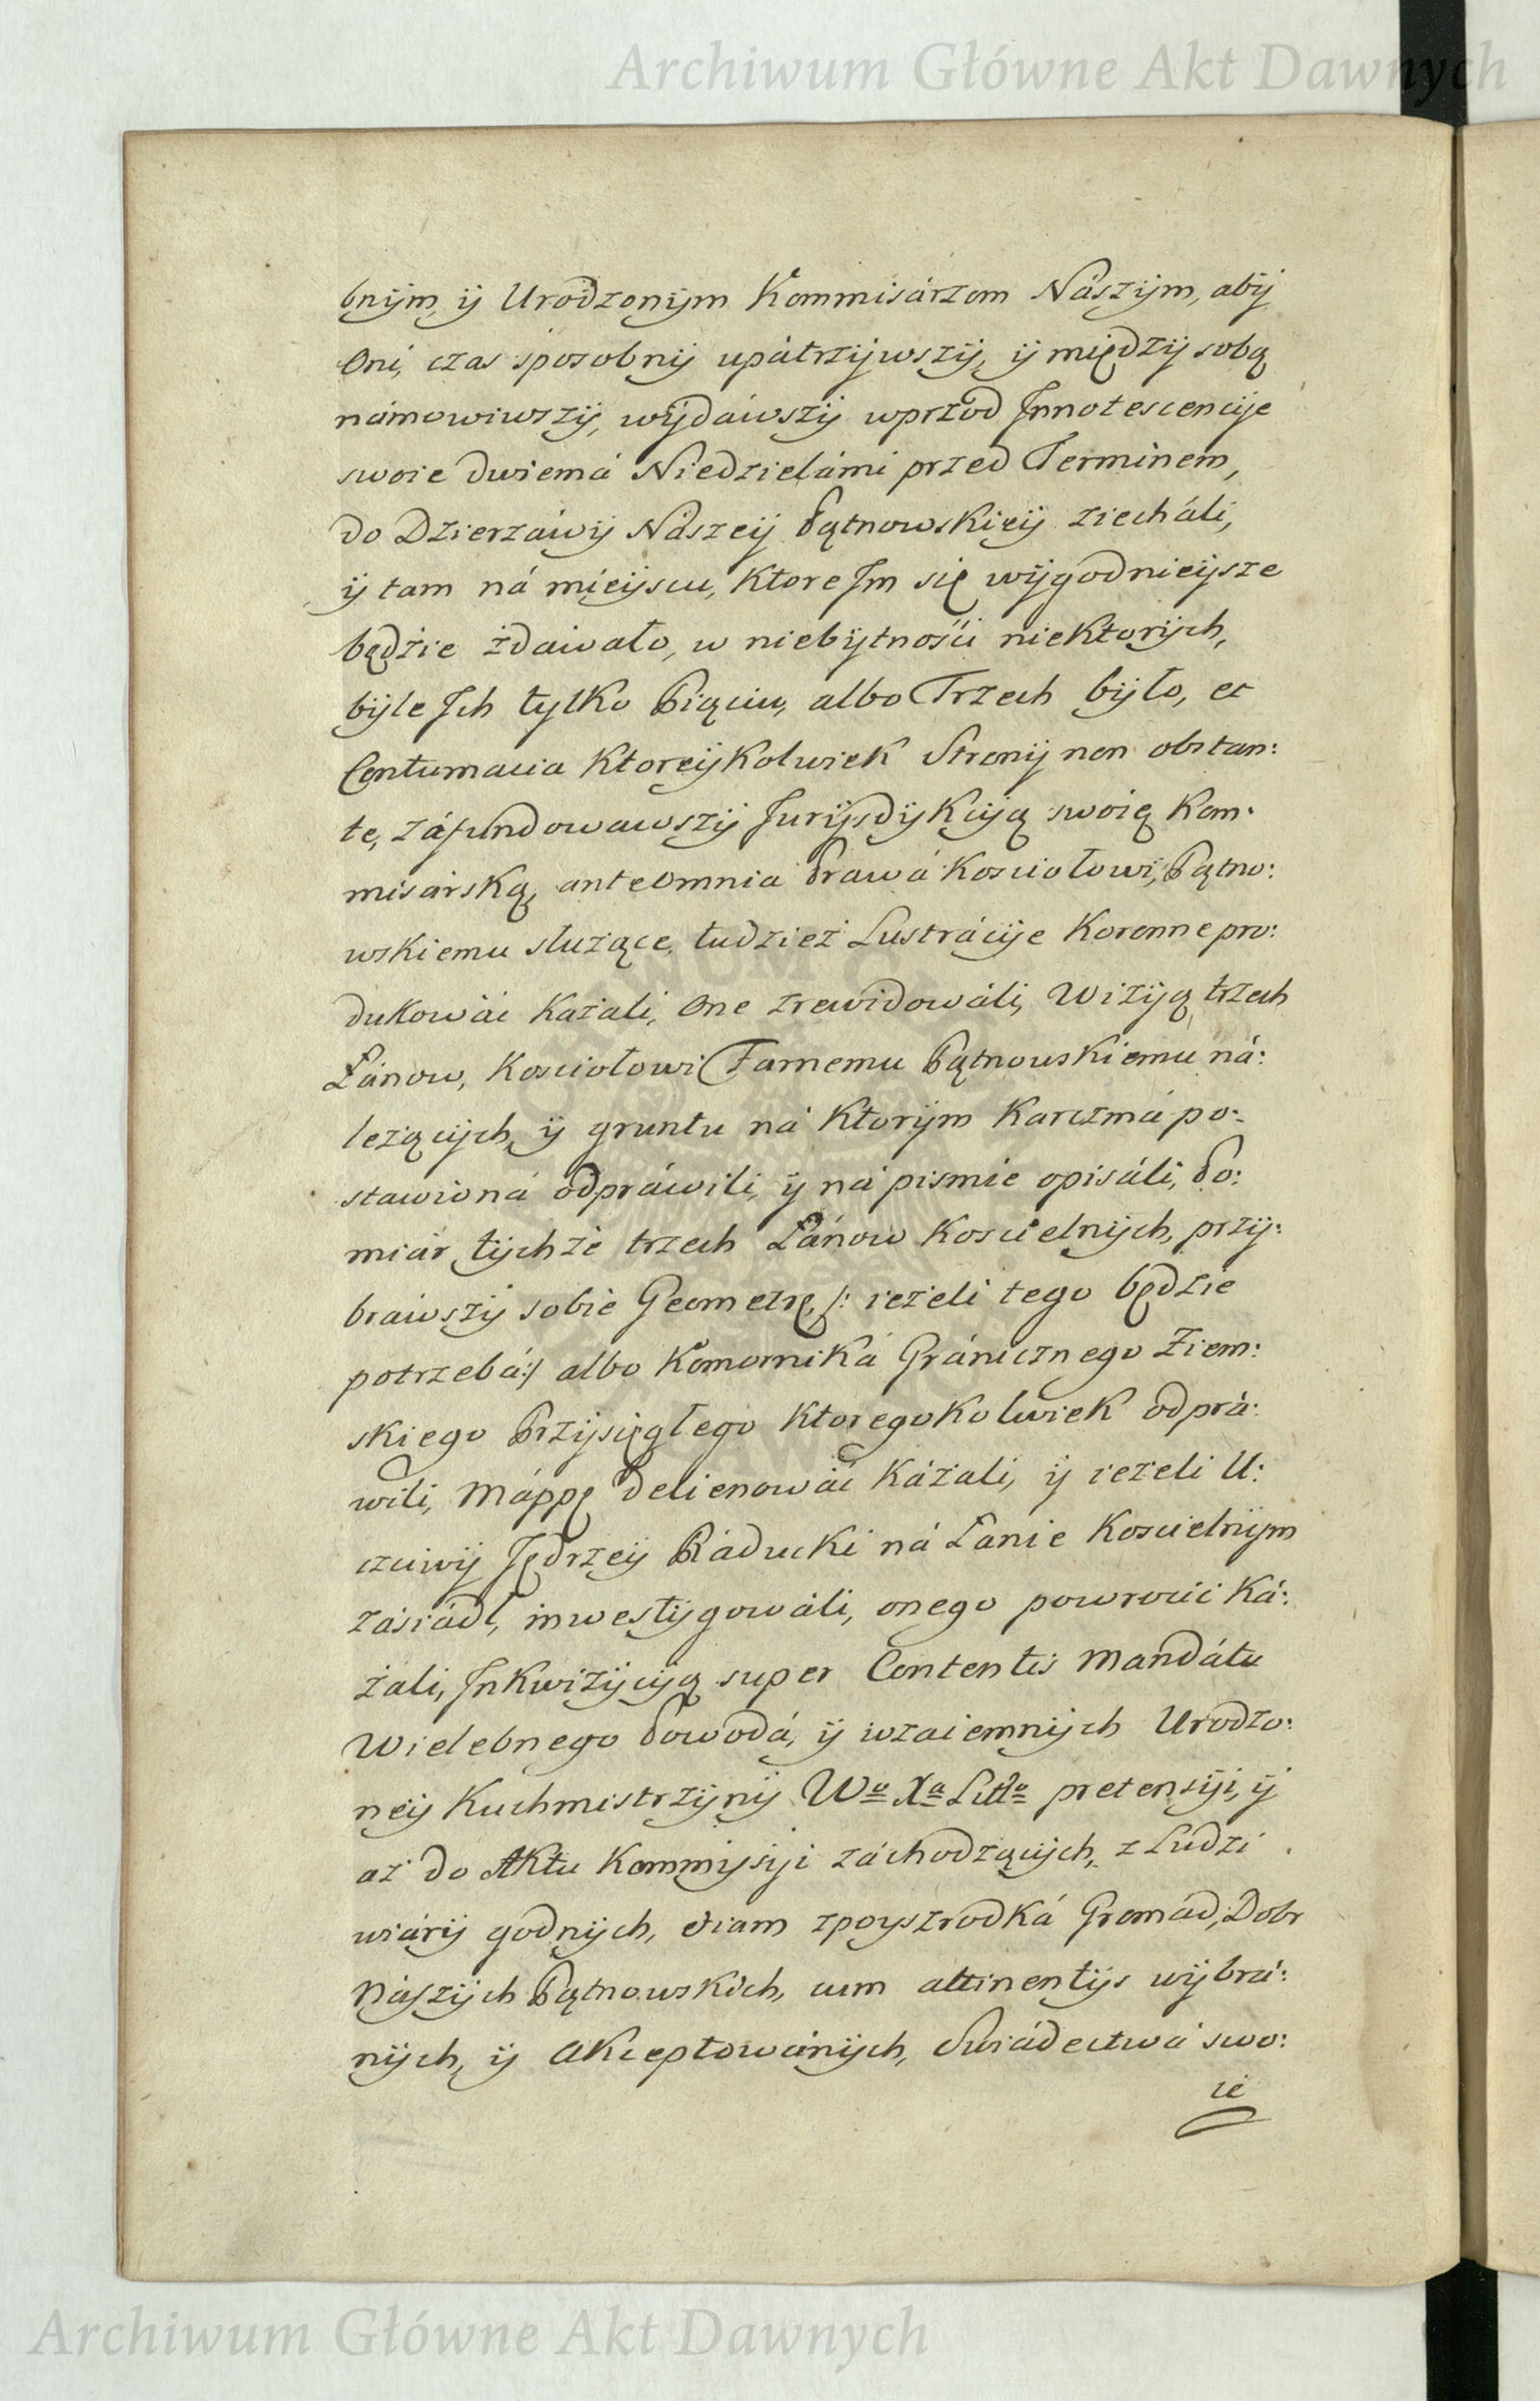 Archiwum Główne Akt Dawnych
bnÿm, ÿ Urodzonÿm Kommisárzom Nászÿm, abÿ
Oni, czas sposobnÿ upátrzÿwszÿ, ÿ międzÿ sobą
námowiwszÿ, wÿdáwszÿ wprzod Innotescencÿe
swoie dwiemá Niedzielámi przed Terminem,
do Dzierzáwÿ Nászeÿ Pątnowskieÿ ziecháli,
ÿ tam ná mieÿscu, Ktore Im się wÿgodnieÿsze
będzie zdawało, w niebÿtnośći nieKtorÿch,
bÿle Ich tylKo Pięciu, albo Trzech bÿło, et
Contumacia KtoreÿKolwieK Stronÿ non obstan:
te, záfundowawszÿ JurÿsdÿKcÿą swoią Kom:
misárską, ante omnia Prawá Kosciołowi, Pątno:
wskiemu służące, tudzież Lustrácÿe Koronne pro:
duKowáć Kazali, One zrewidowáli, Wizÿą trzech
Łánow, Kosciołowi Farnemu Pątnowskiemu ná:
lezącÿch, ÿ gruntu ná Ktorÿm Karczmá po:
stawioná odpráwili, ÿ ná pismie opisáli, Po:
miár tÿchże trzech Łánow Koscielnÿch, przÿ:
brawszÿ sobie Geometrę, /: ieżeli tego będzie
potrzebá:/ albo KomorniKá Gránicznego Ziem:
skiego Przÿsięgłego KtoregoKolwieK odprá:
wili, Máppę delienowáć Kázali, ÿ ieżeli U:
czciwÿ Jędrzeÿ Ráducki ná Łanie Koscielnÿm
zásiádł, inwestÿgowáli, onego powrocić Ká:
záli, InKwizÿcÿą super Contentis Mandátu
Wielebnego Powodá, ÿ wzaiemnÿch Urodzo:
neÿ Kuchmistrzÿnÿ Wo Xa Litto pretensÿi, ÿ
aż do AKtu Kommisÿi záchodzącÿch, z Ludzi
wiárÿ godnÿch, etiam zpoyszrodKá Gromád, Dobr
Nászÿch Pątnowskich, cum attinentÿs wÿbrá:
nÿch, ÿ AKceptowánÿch, Swiádectwá swo:
ie
Archiwum Główne Akt Dawnych